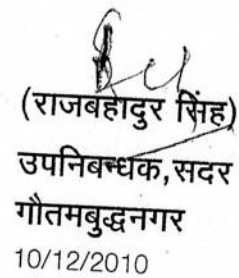 (राजबहादुर सिंह)
उपनिबन्धक,सदर
गौतमबुद्धनगर
10/12/2010